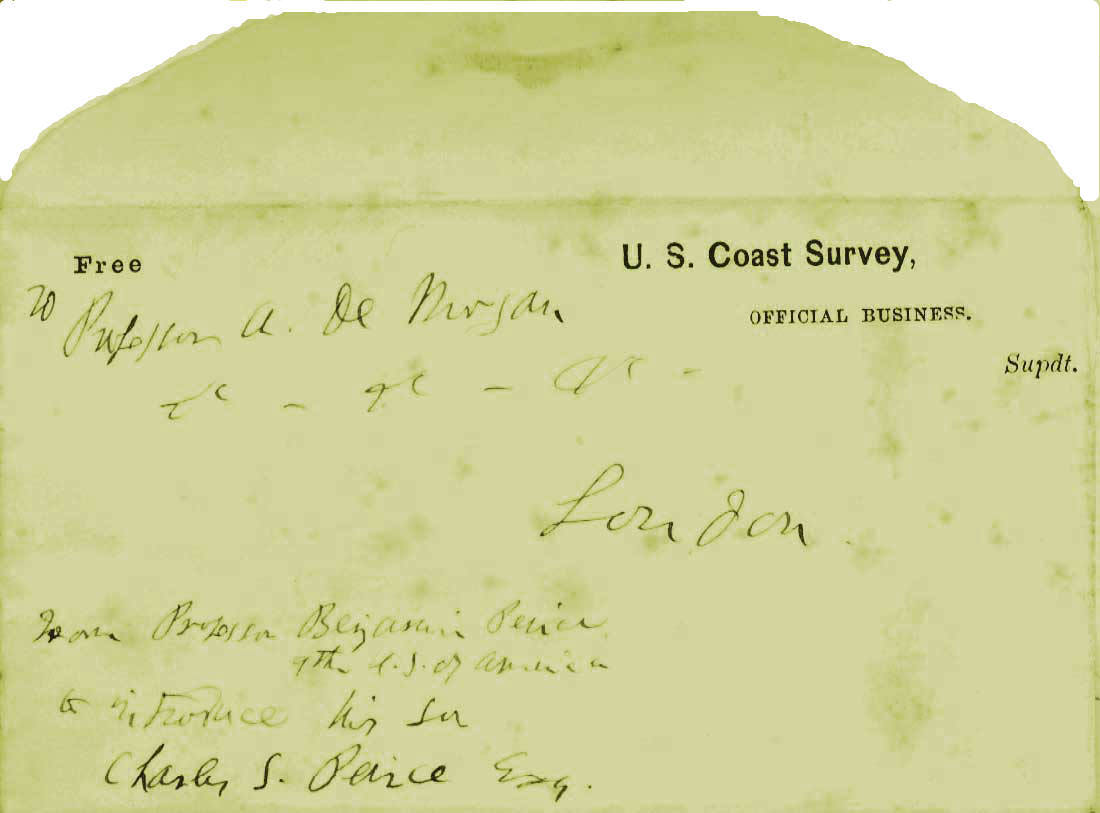 Free
U. S. Coast Survey,
OFFICIAL BUSINESS.
Supdt.
To
Professor A. De Morgan
&c - &c - &c -
London.
From Professor Benjamin Peirce
of the U.S. of America
to introduce his son
Charles S. Peirce Esq.